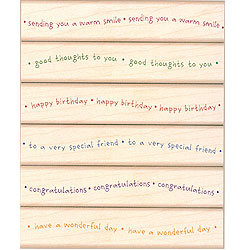 • sending you a warm smile • sending you a warm smile •
• good thoughts to you • good thoughts to you •
• happy birthday • happy birthday • happy birthday •
• to a very special friend • to a very special friend •
• congratulations • congratulations • congratulations •
• have a wonderful day • have a wonderful day •